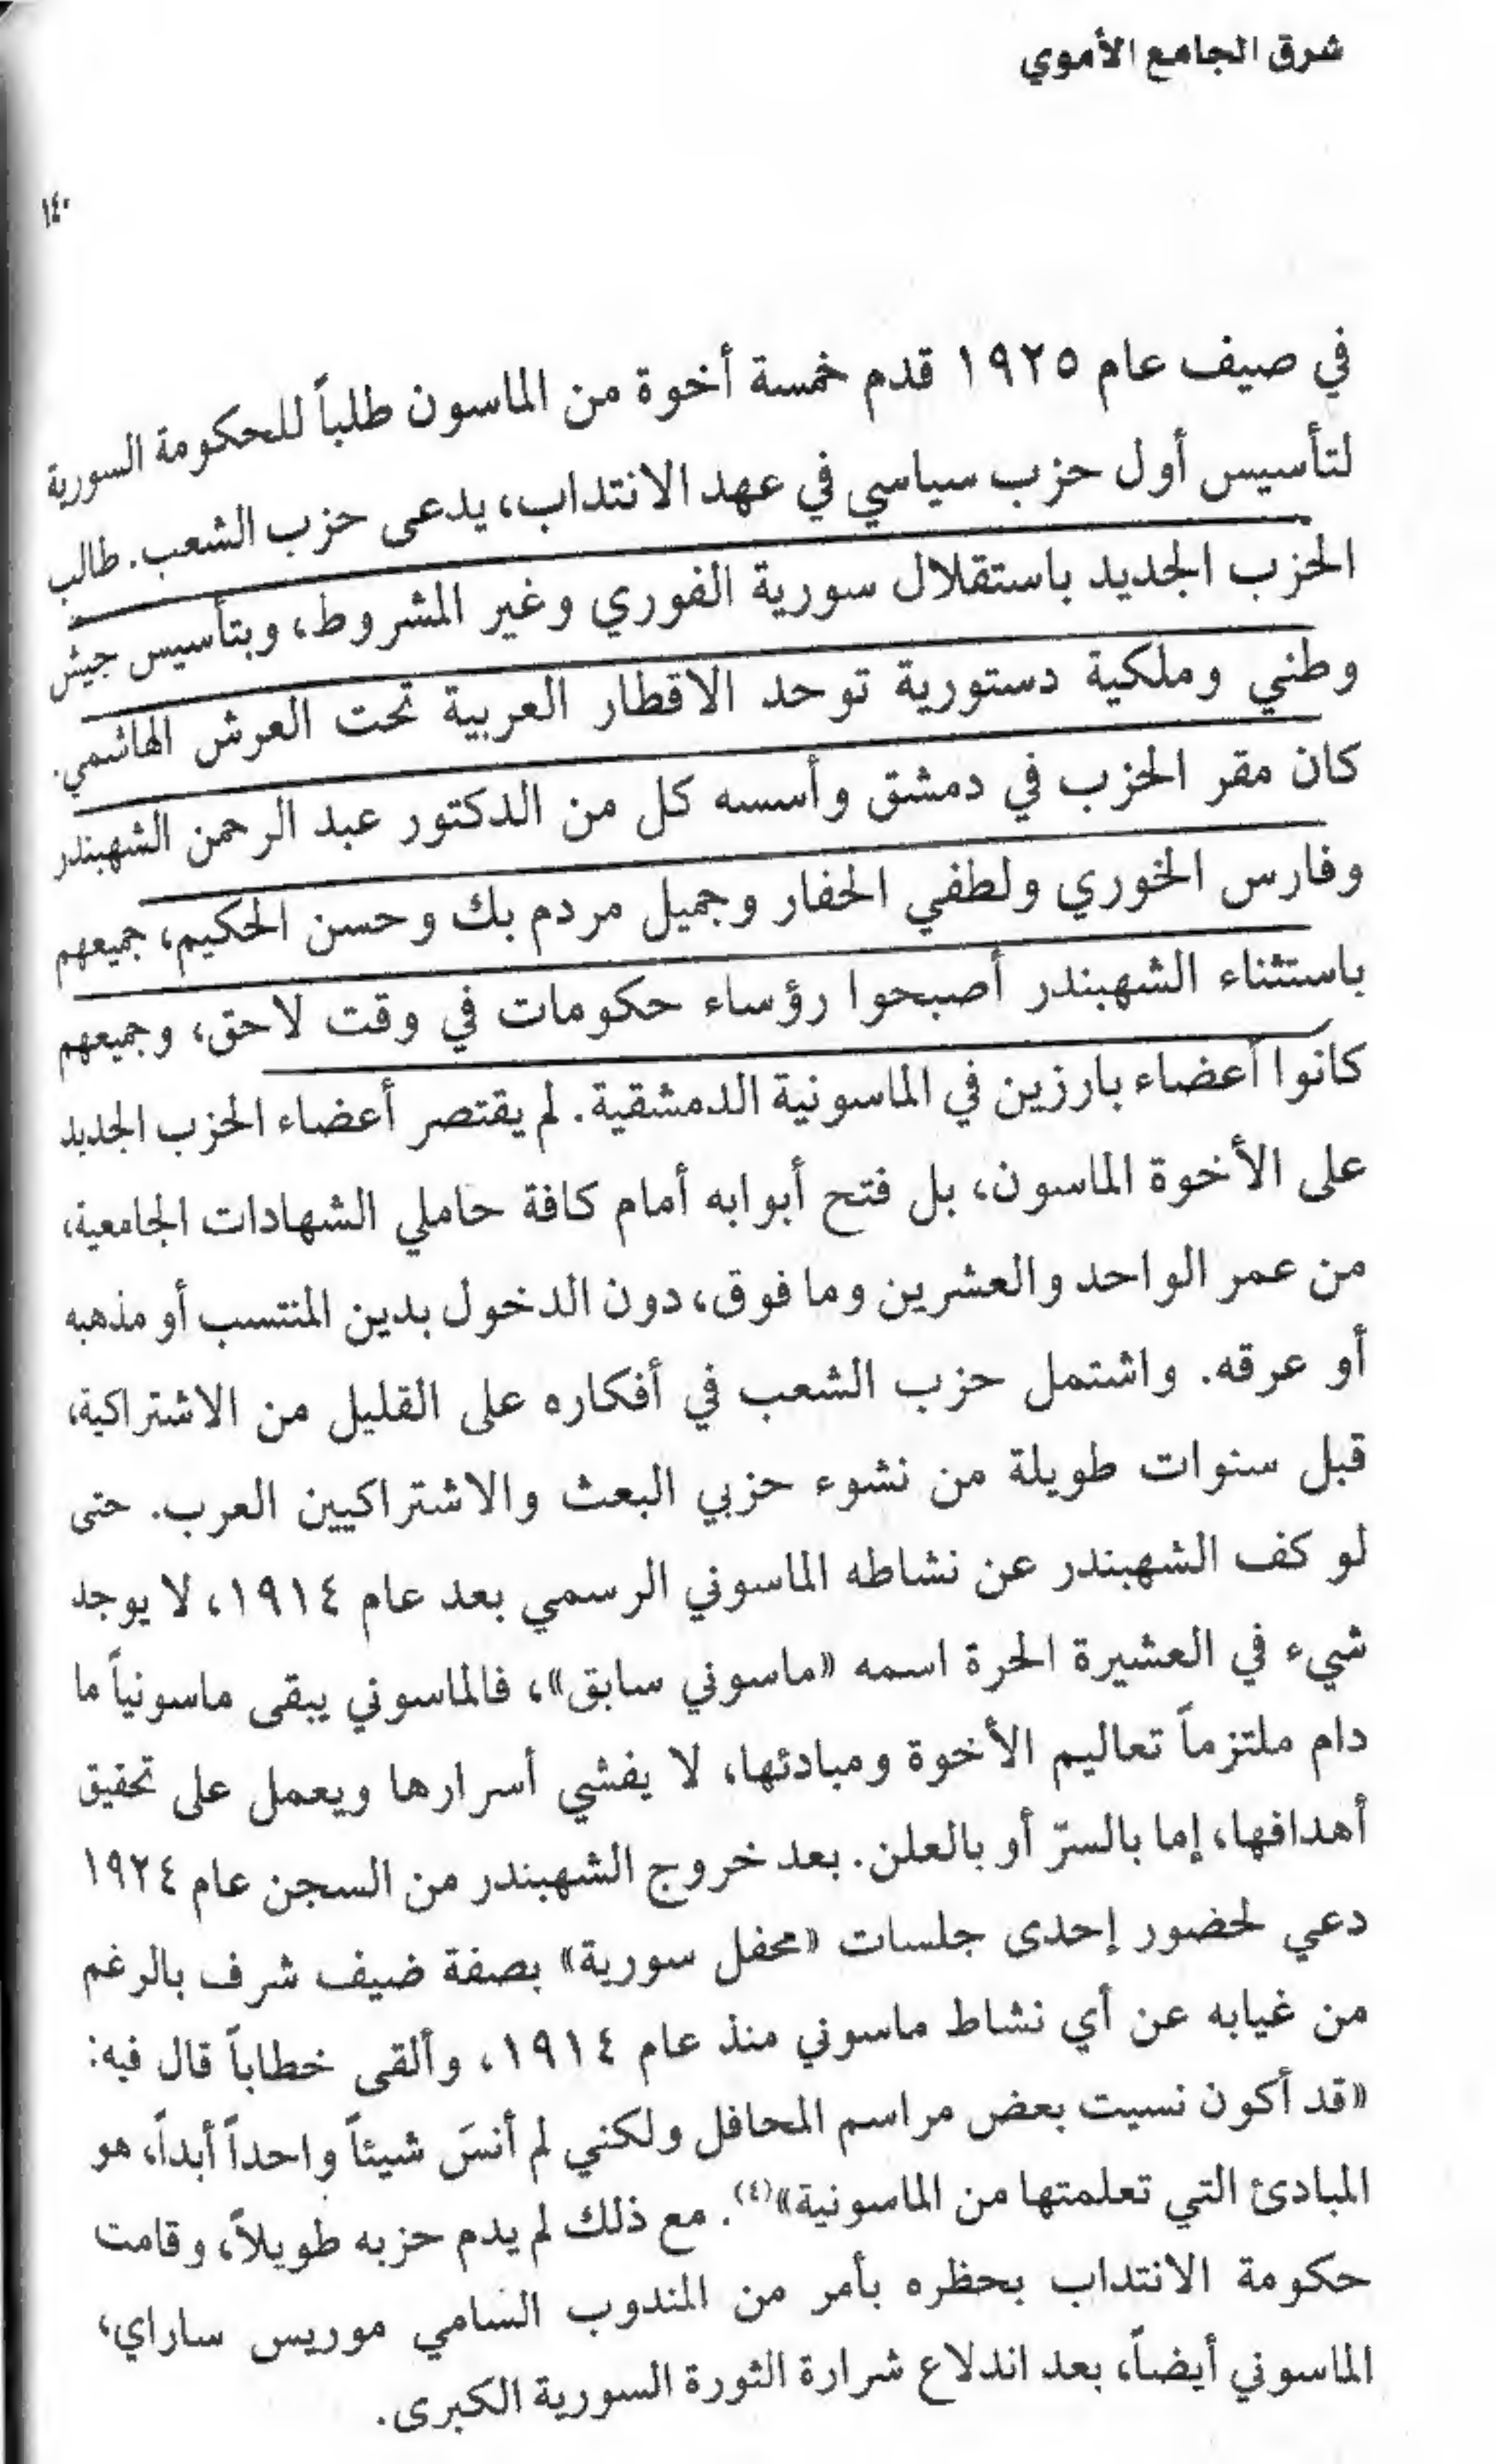 شرق الجامع الأموي
١٤٠
في صيف عام ١٩٢٥ قدم خمسة أخوة من الماسون طلباً للحكومة السورية
لتأسيس أول حزب سياسي في عهد الانتداب، يدعى حزب الشعب. طالب
الحزب الجديد باستقلال سورية الفوري وغير المشروط، وبتأسيس جيش
وطني وملكية دستورية توحد الاقطار العربية تحت العرش الهاشمي.
كان مقر الحزب في دمشق وأسسه كل من الدكتور عبد الرحمن الشهبندر
وفارس الخوري ولطفي الحفار وجميل مردم بك وحسن الحكيم، جميعهم
باستثناء الشهبندر أصبحوا رؤساء حكومات في وقت لاحق، وجميعهم
كانوا أعضاء بارزين في الماسونية الدمشقية. لم يقتصر أعضاء الحزب الجديد
على الأخوة الماسون، بل فتح أبوابه أمام كافة حاملي الشهادات الجامعية،
من عمر الواحد والعشرين وما فوق، دون الدخول بدين المنتسب أو مذهبه
أو عرقه. واشتمل حزب الشعب في أفكاره على القليل من الاشتراكية،
قبل سنوات طويلة من نشوء حزبي البعث والاشتراكيين العرب. حتى
لو كف الشهبندر عن نشاطه الماسوني الرسمي بعد عام ١٩١٤، لا يوجد
شيء في العشيرة الحرة اسمه «ماسوني سابق»، فالماسوني يبقى ماسونياً ما
دام ملتزماً تعاليم الأخوة ومبادئها، لا يفشي أسرارها ويعمل على تحقيق
أهدافها، إما بالسرّ أو بالعلن. بعد خروج الشهبندر من السجن عام ١٩٢٤
دعي لحضور إحدى جلسات «محفل سورية» بصفة ضيف شرف بالرغم
من غيابه عن أي نشاط ماسوني منذ عام ١٩١٤، وألقى خطاباً قال فيه:
«قد أكون نسيت بعض مراسم المحافل ولكني لم أنسَ شيئاً واحداً أبداً، هو
المبادئ التي تعلمتها من الماسونية»(٤). مع ذلك لم يدم حزبه طويلاً، وقامت
حكومة الانتداب بحظره بأمر من المندوب السامي موريس ساراي،
الماسوني أيضاً، بعد اندلاع شرارة الثورة السورية الكبرى.